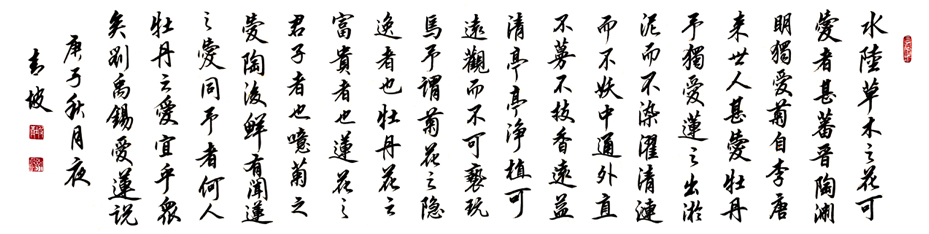 水陸草木之花可
愛者甚蕃晋陶渊
明獨愛菊自李唐
来世人甚愛牡丹
予獨愛蓮之出淤
泥而不染濯清漣
而不妖中通外直
不蔓不枝香遠益
清亭亭净植可
遠觀而不可褻玩
焉予謂菊花之隐
逸者也牡丹花之
富貴者也蓮花之
君子者也噫菊之
愛陶後鮮有聞蓮
之愛同予者何人
牡丹之愛宜乎衆
矣劉禹錫愛蓮説
庚子秋月夜
坡